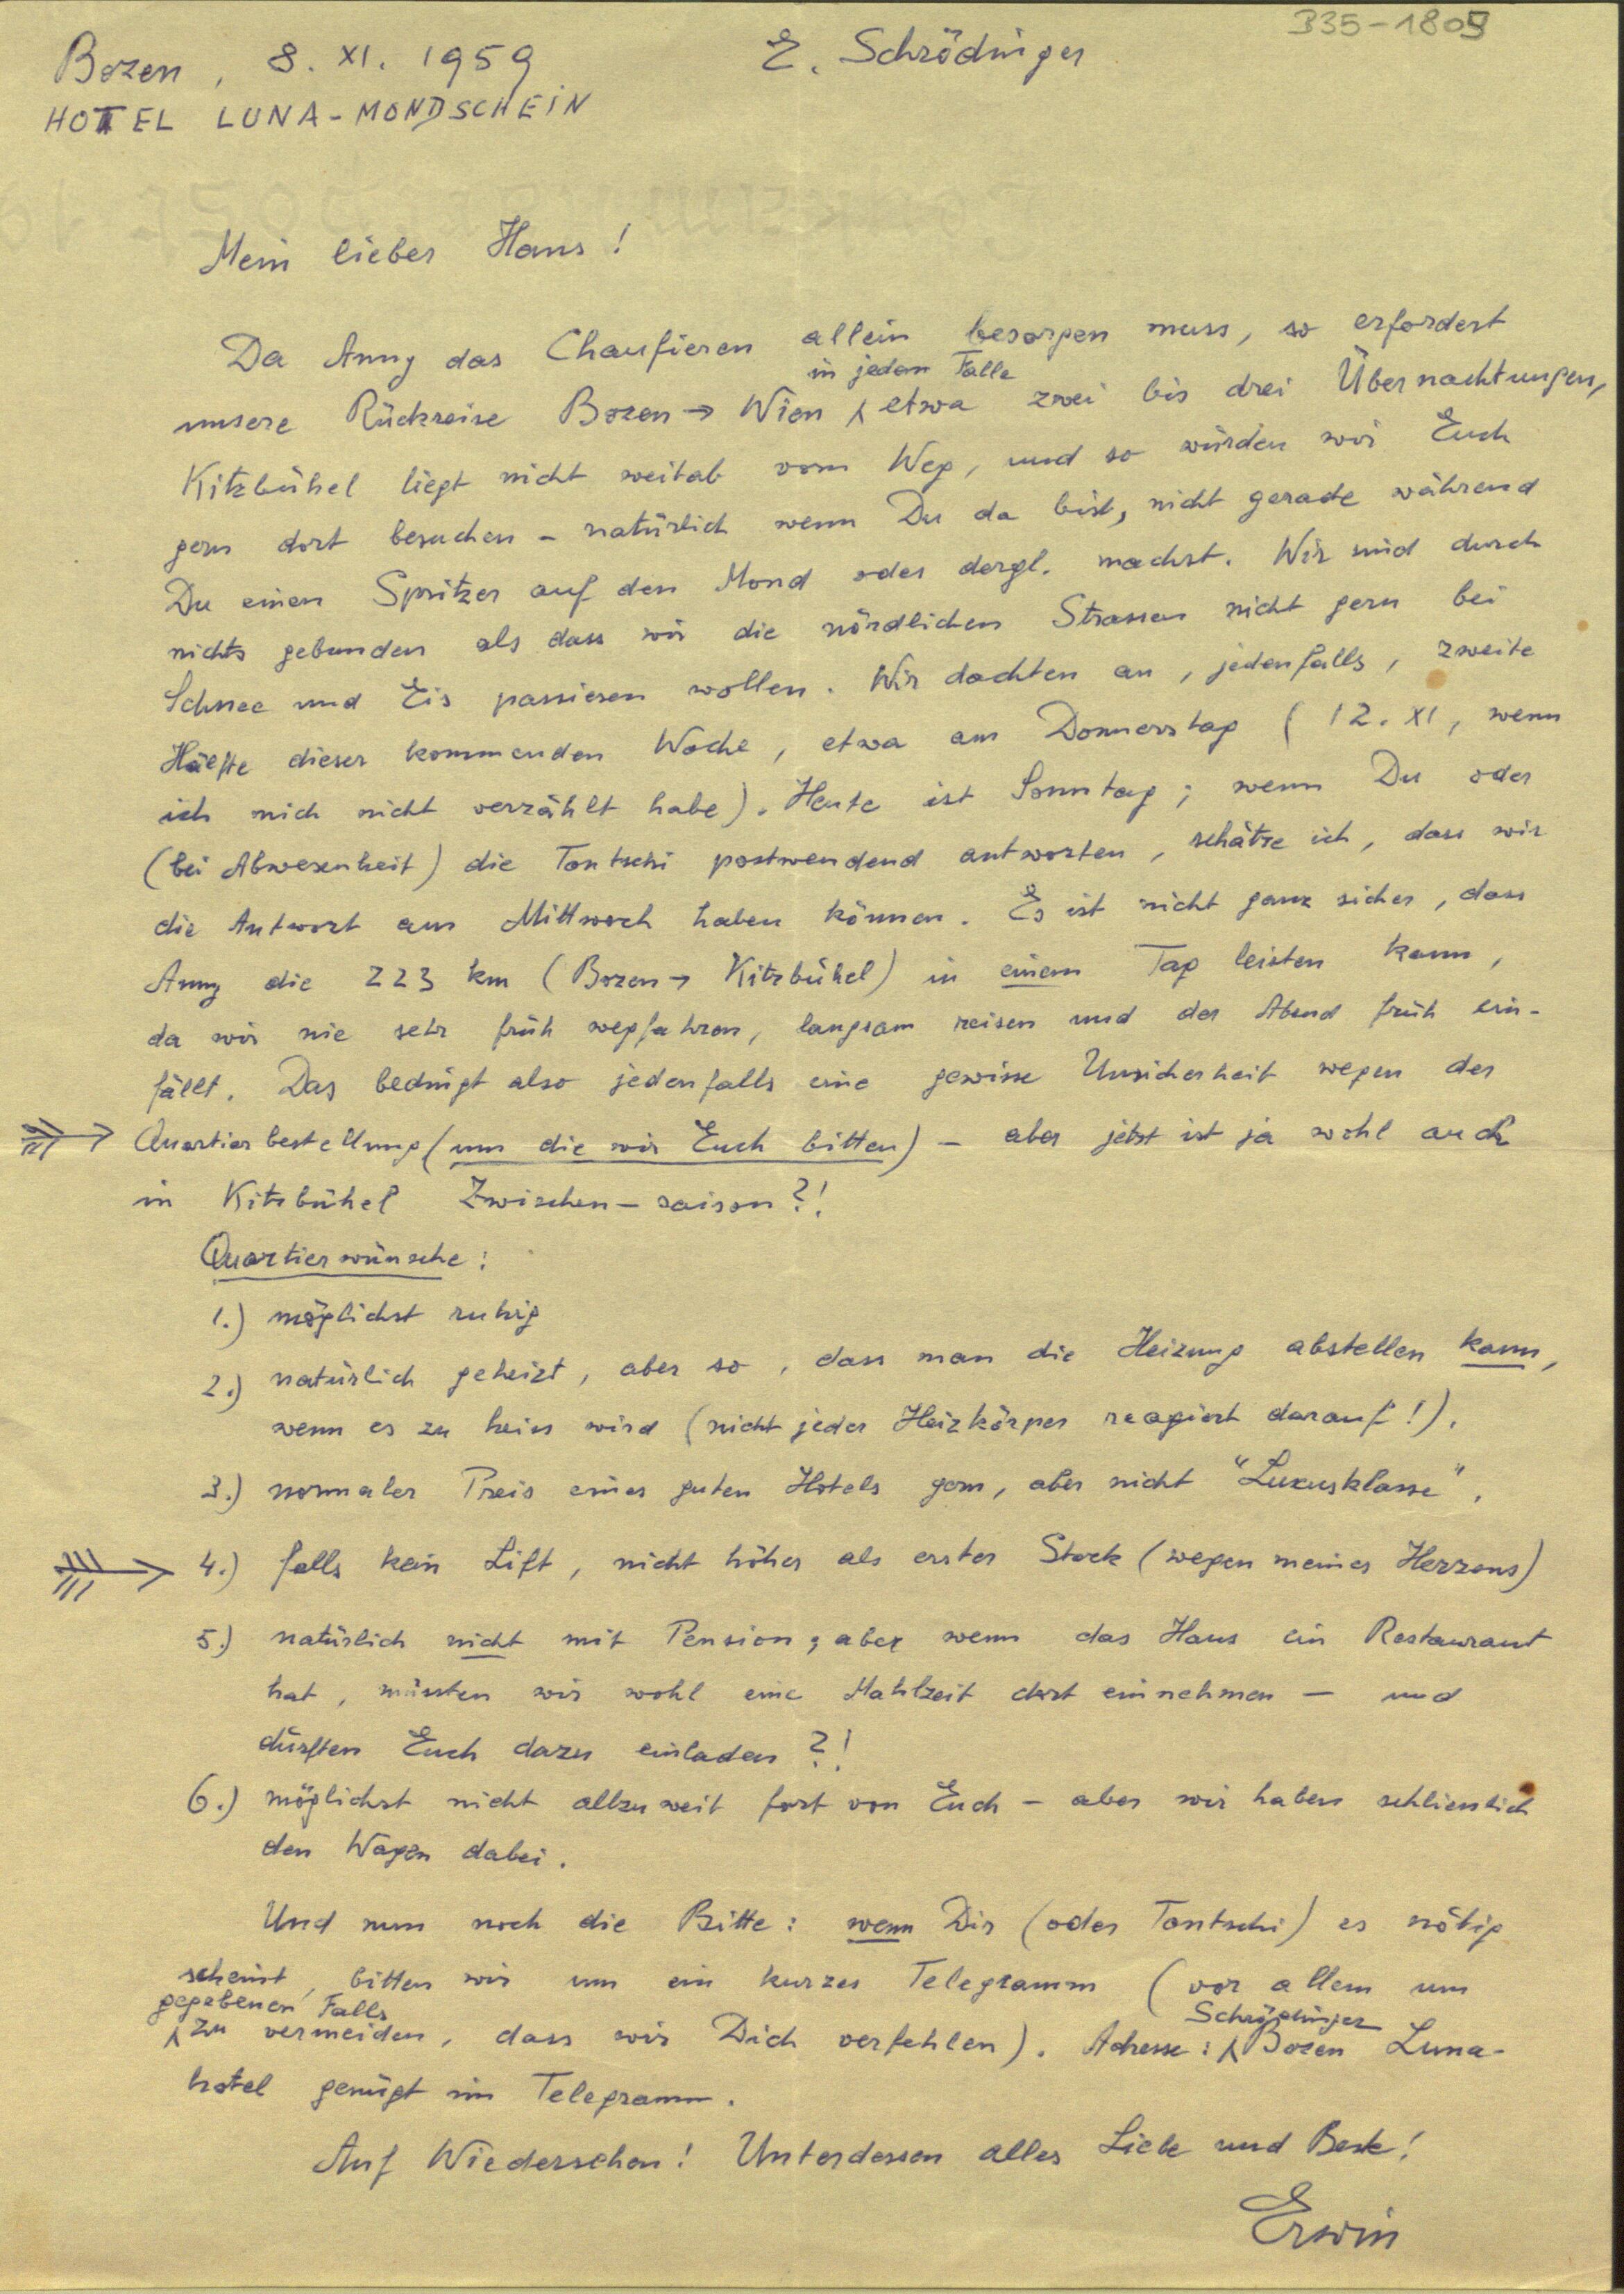 B35-1809
Bozen, 8. XI. 1959 E. Schrödinger
HOTEL LUNA-MONDSCHEIN
Mein lieber Hans!
Da Anny das Chaufieren allein besorgen muss, so erfordert
in jedem Falle
unsere Rückreise Bozen → Wien etwa zwei bis drei Übernachtungen,
Kitzbühel liegt nicht weitab vom Weg, und so würden wir Euch
gern dort besuchen - natürlich wenn Du da bist, nicht gerade während
Du einen Spritzer auf den Mond oder dergl. machst. Wir sind durch
nichts gebunden als dass wir die nördlichen Strassen nicht gern bei
Schnee und Eis passieren wollen. Wir dachten an, jedenfalls, zweite
Hälfte dieser kommenden Woche, etwa am Donnerstag (12. XI, wenn
ich mich nicht verzählt habe). Heute ist Sonntag; wenn Du oder
(bei Abwesenheit) die Tontschi postwendend antworten, schätze ich, dass wir
die Antwort am Mittwoch haben können. Es ist nicht ganz sicher, dass
Anny die 223 km (Bozen → Kitzbühel) in einem Tag leisten kann,
da wir nie sehr früh wegfahren, langsam reisen und der Abend früh ein-
fällt. Das bedingt also jedenfalls eine gewisse Unsicherheit wegen der
Quartierbestellung (um die wir Euch bitten) - aber jetzt ist ja wohl auch
in Kitzbühel Zwischen-saison?!
Quartierwünsche:
1.) möglichst ruhig
2.) natürlich geheizt, aber so, dass man die Heizung abstellen kann,
wenn es zu heiss wird (nicht jeder Heizkörper reagiert darauf!).
3.) normaler Preis eines guten Hotels gern, aber nicht "Luxusklasse".
4.) falls kein Lift, nicht höher als erster Stock (wegen meines Herzens)
5.) natürlich nicht mit Pension; aber wenn das Haus ein Restaurant
hat, müssten wir wohl eine Mahlzeit dort einnehmen - und
dürften Euch dazu einladen?!
6.) möglichst nicht allzuweit fort von Euch - aber wir haben schliesslich
den Wagen dabei.
Und nun noch die Bitte: wenn Dir (oder Tontschi) es nötig
scheint, bitten wir um ein kurzes Telegramm (vor allem um
gegebenen Falls Schrödinger
zu vermeiden, dass wir Dich verfehlen). Adresse: Bozen Luna-
hotel genügt im Telegramm.
Auf Wiedersehen! Unterdessen alles Liebe und Beste!
Erwin